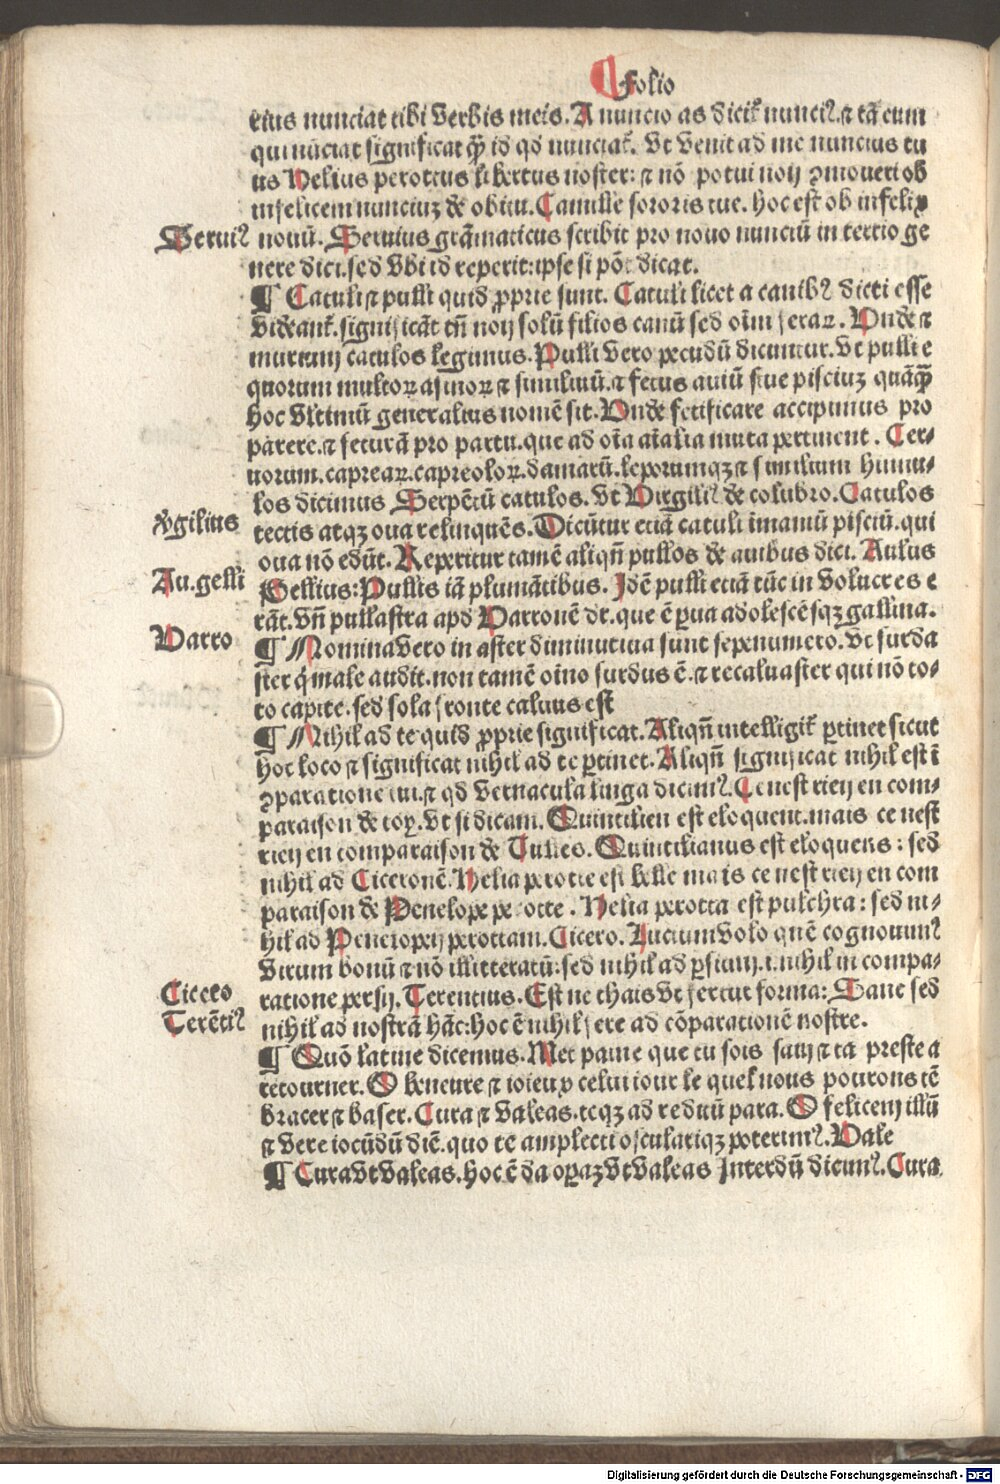 ¶ Folio
tius nunciat tibi verbis meis. A nuncio as dicit̃ nunciꝰ. ⁊ tā eum
qui nūciat significat qͫ id qd nunciat̃. Vt venit ad me nuncius tu
us Helius perottus libertus noster: ⁊ nō potui non ꝯmoueri ob
infelicem nunciuꝫ de obitu. Camille sororis tue. hoc est ob infelix
Seruiꝰ
nouū. Seruius grāmaticus scribit pro nouo nunciū in tertio ge
nere dici. sed vbi id reperit: ipse si pōt dicat.
¶ Catuli ⁊ pulli quid ꝓprie sunt. Catuli licet a canibꝰ dicti esse
videant̃. significāt tn̄ non solū filios canū sed oīm feraꝝ. Vnde ⁊
murium catulos legimus. Pulli vero pecudū dicuntur. Vt pulli e
quorum multoꝝ asinoꝝ ⁊ similiuū. ⁊ fetus auiū siue pisciuꝫ quāqͫ
hoc vltimū generalius nomē sit. Vnde fetificare accipimus pro
parere. ⁊ feturā pro partu. que ad oīa aīalia muta pertinent. Cer-
uorum. capreaꝝ. capreoloꝝ. damarū. leporumqꝫ ⁊ similium hinnu-
los dicimus Serpētū catulos. Vt Virgiliꝰ de colubro. Catulos
Virgilius
tectis atqꝫ oua relinquēs. Dicūtur etiā catuli imaniū pisciū. qui
oua nō edūt. Reperitur tamē aliqn̄ pullos de auibus dici. Aulus
Au. gelli
Gellius: Pullis iā plumātibus. Idē pulli etiā tūc in volucres e
rāt. vn̄ pullastra apd Varronē dr̄. que ē ꝑua adolescēsqꝫ gallina.
Varro
¶ Nomina vero in aster diminutiua sunt sepenumero. vt surda
ster q̇ male audit. non tamē oīno surdus ē. ⁊ recaluaster qui nō to-
to capite. sed sola fronte caluus est
¶ Nihil ad te quid ꝓprie significat. Aliqn̄ intelligit̃ ꝑtinet sicut
hoc loco ⁊ significat nihil ad te ꝑtinet. Aliqn̄ significat nihil est ī
ꝯparatione tui. ⁊ qd vernacula linga dicimꝰ. Ce nest rien en com-
paraison de toy. vt si dicam. Quintilien est eloquent. mais ce nest
rien en comparaison de Tulles. Quintilianus est eloquens: sed
nihil ad Ciceronē. Helia perotte est belle mais ce nest rien en com
paraison de Penelope perotte. Helia perotta est pulchra: sed ni-
hil ad Penelopen perottam. Cicero. Lucium volo quē cognouimꝰ
virum bonū ⁊ nō illitteratū: sed nihil ad ꝑsium. i. nihil in compa-
Cicero
ratione persij. Terentius. Est ne thais vt fertur forma: Sane sed
Terētiꝰ
nihil ad nostrā hāc: hoc ē nihil fere ad cōparationē nostre.
¶ Quō latine dicemus. Met paine que tu sois sain ⁊ ta preste a
retourner. O beneure ⁊ ioieux celui iour le quel nous pourons tē
bracer ⁊ baser. Cura ⁊ valeas. teqꝫ ad reditū para. O felicem illū
⁊ vere iocūdū diē. quo te amplecti oscularíqꝫ poterimꝰ. Vale
¶ Cura vt valeas. hoc ē da operaꝫ vt valeas Interdū dicimꝰ. Cura
Digitalisierung gefördert durch die Deutsche Forschungsgemeinschaft - DFG